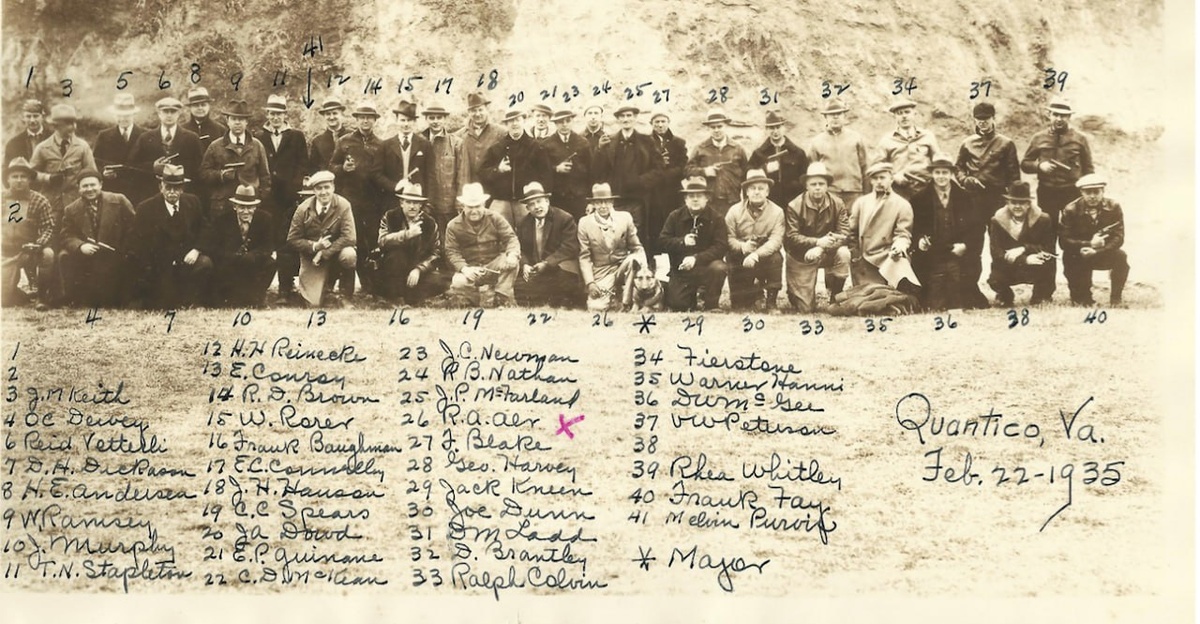 41
1 3 5 6 8 9 11 12 14 15 17 18 20 21 23 24 25 27 28 31 32 34 37 39
2
4 7 10 13 16 19 22 26 * 29 30 33 35 36 38 40
1
2
3 J.M Keith
4 OC Dewey
6 Reid Vetterli
7 D.H. Dickason
8 H.E. Andersen
9 W. Ramsey
10 J. Murphy
11 T.N. Stapleton
12 H.H Reinecke
13 E. Conroy
14 R.D. Brown
15 W. Rorer
16 Frank Baughman
17 E.C. Connelly
18 J.H. Hanson
19 C.C Spears
20 JA Dowd
21 E.P. Guinane
22 C.D. McKean
23 J.C. Newman
24 R B. Nathan
25 J.P. McFarland
26 R.A. Aler X
27 F. Blake
28 Geo. Harvey
29 Jack Kneen
30 Joe Dunn
31 DM Ladd
32 D. Brantley
33 Ralph Colvin
34 Fierstone
35 Warner Hanni
36 DWMcGee
37 VW Peterson
38
39 Rhea Whitley
40 Frank Fay
41 Melvin Purvis
* Major
Quantico, Va.
Feb. 22-1935